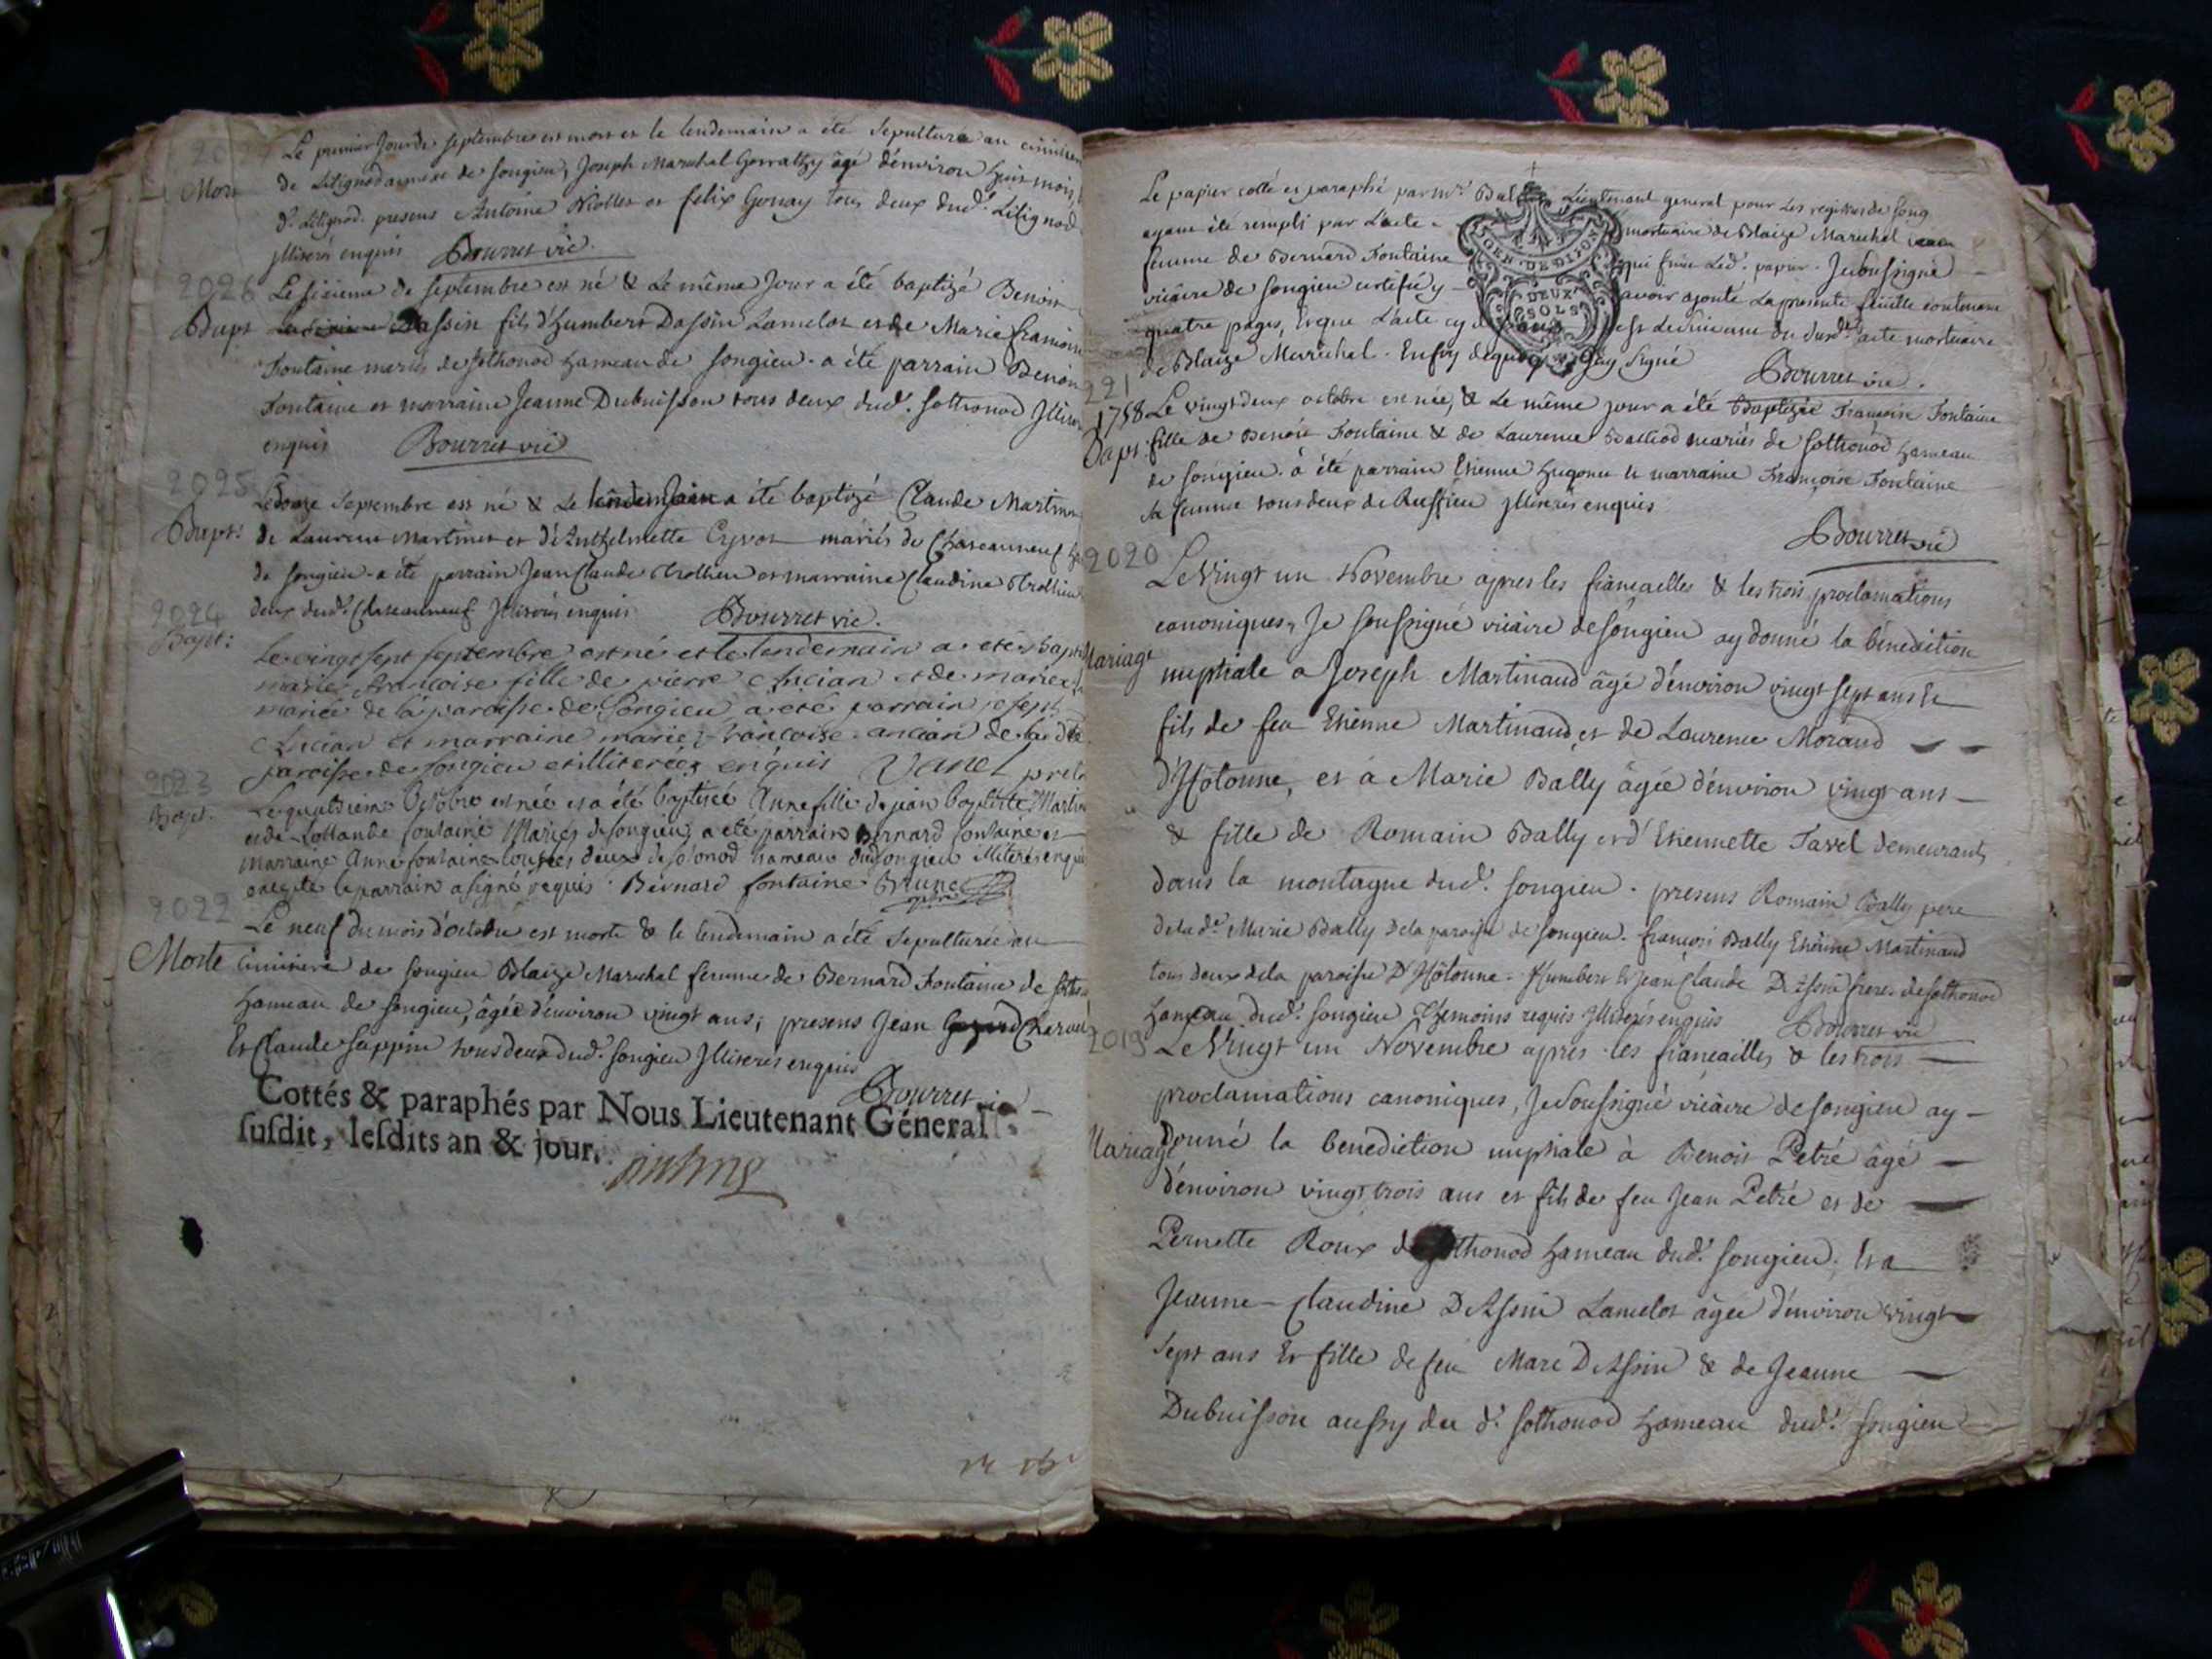 Le premier Jour de septembre est mort et le lendemain a été sepulturé au
Mort
de Litignod annexe de songieu, Joseph Marechal âgé d'environ huit mois,
d. Litignod. presens Antoine et felix Gonay tous deux dud. Litignod
Illiterés enquis Bourret vic.
2026
Le sixieme de septembre est né & Le même Jour a été baptizé Benoit
Bapt
Dassin fils d'humbert Dassin Lamelot et de Marie francoise
Fontaine mariés de sothonod hameau de songieu. a été parrain Benoit
Fontaine et marraine Jeanne Dubuisson tous deux dud. sothonod
enquis Bourret vic
2025
Le douze Septembre est né & Le lendemain a été baptizé Claude
Bapt:
de Laurent Martinet et d'Anthelmette mariés de Chateauneuf
de songieu. a été parrain Jean Claude et marraine Claudine
deux dud. Chateauneuf Illiterés enquis Bourret vic.
2024
Bapt:
Le vingt sept septembre est né et le lendemain a eté
marie francoise fille de pierre Ancian et de marie
mariée de la paroisse de songieu, a eté parrain joseph
Ancian et marraine marie francoise ancian de la dte
paroisse de songieu et illiterées enquis Vanel
2023
Bapt.
Le quatrieme Octobre est née et a été baptisée Anne fille de jean baptiste
et de fontaine Mariés de songieu, a eté parrain Bernard fontaine et
marraine Anne fontaine tous les deux de sotonod hameau dud songieu illiterés
le parrain a signé requis. Bernard fontaine Brunet
2022
Le neuf du mois d'octobre est morte & le lendemain a été sepulturée au
Morte
cimitiere de songieu Blaize Marechal femme de Bernard Fontaine de
hameau de songieu, âgée d'environ vingt ans; presens Jean
Et Claude sappin tous deux dud. songieu Illiterés enquis
Bourret vic
Cottés & paraphés par Nous Lieutenant Géneral
susdit, lesdits an & jour.
Le papier cotté et paraphé par mr. Lieutenant general pour les registres de
ayant été rempli par L'acte mortuaire de Blaize Marechal
femme de Bernard Fontaine qui finit Led. papier. Je soussigné
vicaire de songieu certifie y avoir ajouté La presente feuille contenant
quatre pages, et que L'acte cy est du susd. acte mortuaire
de Blaize Marechal. En foy dequoy j'ay signé Bourret vic.
GEN. DE DIJON
DEUX
SOLS
1758 Le vingt deux octobre est née, & Le même jour a été Baptizée Francoise Fontaine
Bapt. fille de Benoit Fontaine & de Laurence Balliod mariés de sothonod hameau
de songieu. a été parrain Etienne hugonet & marraine Françoise Fontaine
sa femme tous deux de Ruffieu Illiterés enquis
Bourret vic
2020
Le Vingt un Novembre après les fiançailles & les trois proclamations
canoniques, Je soussigné vicaire de songieu ay donné la bénediction
Mariage
nuptiale a Joseph Martinaud âgé d'environ vingt sept ans &
fils de feu Etienne Martinaud, et de Laurence Morand
d'Hôtonne, et à Marie Bally âgée d'environ vingt ans
& fille de Romain Bally et d'Etiennette Tavel demeurants
dans la montagne dud. songieu. presens Romain Bally pere
de la de. Marie Bally de la paroisse de songieu. françois Bally Etienne Martinaud
tous deux de la paroisse D'Hôtonne. Humbert & Jean Claude DAssin freres de sothonod
hameau dud. songieu themoins requis Illiterés enquis Bourret vic
2019
Le Vingt un Novembre apres les fiançailles & les trois
proclamations canoniques, Je soussigné vicaire de songieu ay
Mariage
donné la benédiction nuptiale à Benoit Petré âgé
d'environ vingt trois ans et fils de feu Jean Petré et de
Pernette Roux de sothonod hameau dud. songieu. Et a
Jeanne Claudine DAssin Lamelot âgée d'environ vingt
sept ans Et fille de feu Marc DAssin & de Jeanne
Dubuisson aussy du d. sothonod hameau dud. songieu